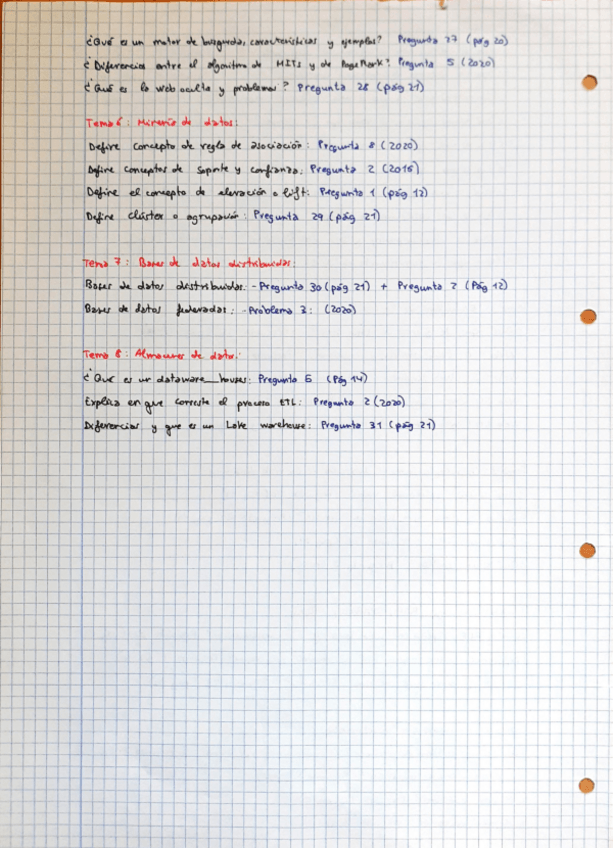 ¿Qué es un motor de busqueda, características y ejemplos? Pregunta 27 (pág 20)
¿Diferencias entre el algoritmo de HITs y de PageRank? Pregunta 5 (2020)
¿Qué es la web oculta y problemas? Pregunta 28 (pág 21)
Tema 6: Minería de datos:
Define concepto de regla de asociación: Pregunta 8 (2020)
Define conceptos de soporte y confianza: Pregunta 2 (2016)
Define el concepto de elevación o lift: Pregunta 1 (pág 12)
Define clúster o agrupación: Pregunta 29 (pág 21)
Tema 7: Bases de datos distribuidas:
Bases de datos distribuidas: - Pregunta 30 (pág 21) + Pregunta 2 (Pág 12)
Bases de datos federadas: - Problema 3: (2020)
Tema 8: Almacenes de datos:
¿Qué es un dataware_house: Pregunta 6 (Pág 14)
Explica en que consiste el proceso ETL: Pregunta 2 (2020)
Diferencias y que es un Lake warehouse: Pregunta 31 (pág 21)